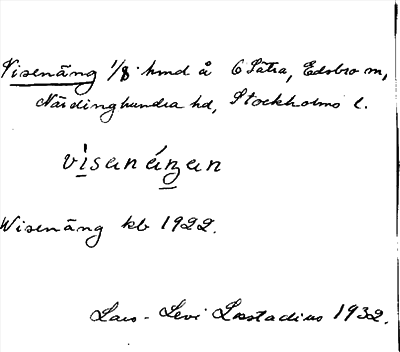 Visenäng 1/8 hmd å 6 Sätra, Edsbro sn,
Närdinghundra hd, Stockholms l.
visanáŋan
Wisenäng kb 1922.
Lars-Levi Læstadius 1932.